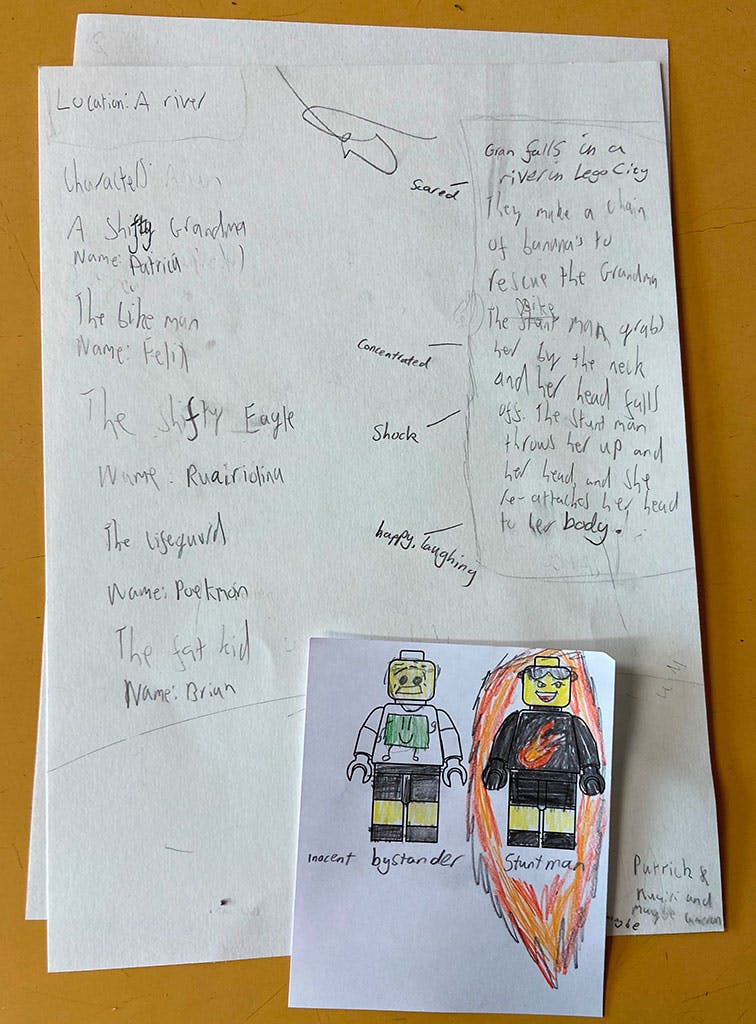 Location: A river
Characters:
A Shifty Grandma
Name: Patricia
The bike man
Name: Felix
The shifty Eagle
Name: Ruairidina
The lifeguard
Name: Poekman
The fat kid
Name: Brian
Scared
Concentrated
Shock
happy, laughing
Gran falls in a
river in Lego City
They make a chain
of banana's to
rescue the Grandma
The stunt Bike man grabs
her by the neck
and her head falls
off. The stunt man
throws her up and
her head, and she
re-attaches her head
to her body!
Inocent bystander
Stuntman
Patrick &
Ruairi and
Maybe